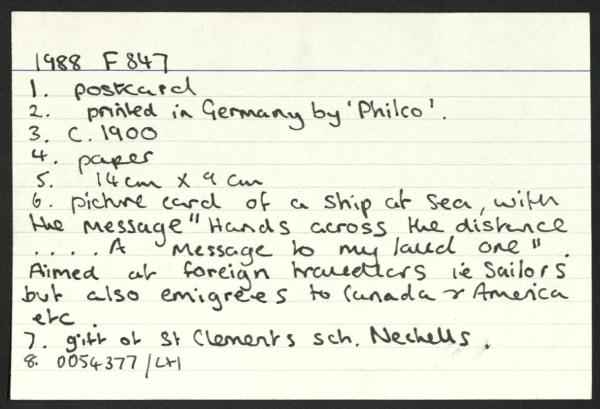 1988 F 847
1. postcard
2. printed in Germany by 'Philco'.
3. C. 1900
4. paper
5. 14cm x 9 cm
6. picture card of a ship at sea, with
the message "Hands across the distance
.... A message to my loved one".
Aimed at foreign travellers i.e sailors
but also emigrees to Canada & America
etc.
7. gift of St Clements sch. Nechells.
8. 0054377/LH